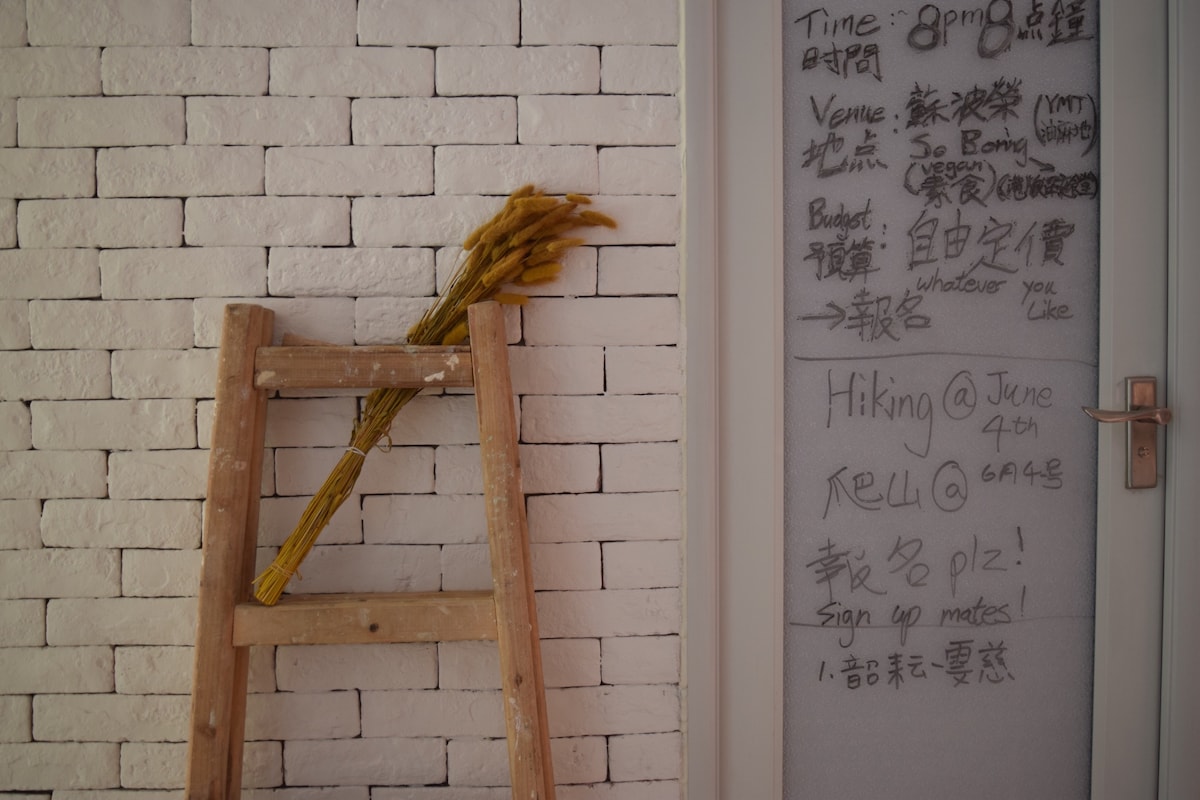 Time : 8pm 8点鐘
时間
Venue : 蘇波榮 (YMT
地点 : So Boring 油麻地)
(vegan
素食)
Budget
預算 : 自由定價
whatever you
→報名 like
Hiking @ June
4th
爬山 @ 6月4号
報名 plz!
sign up mates!
1. 韶耘一雯慈